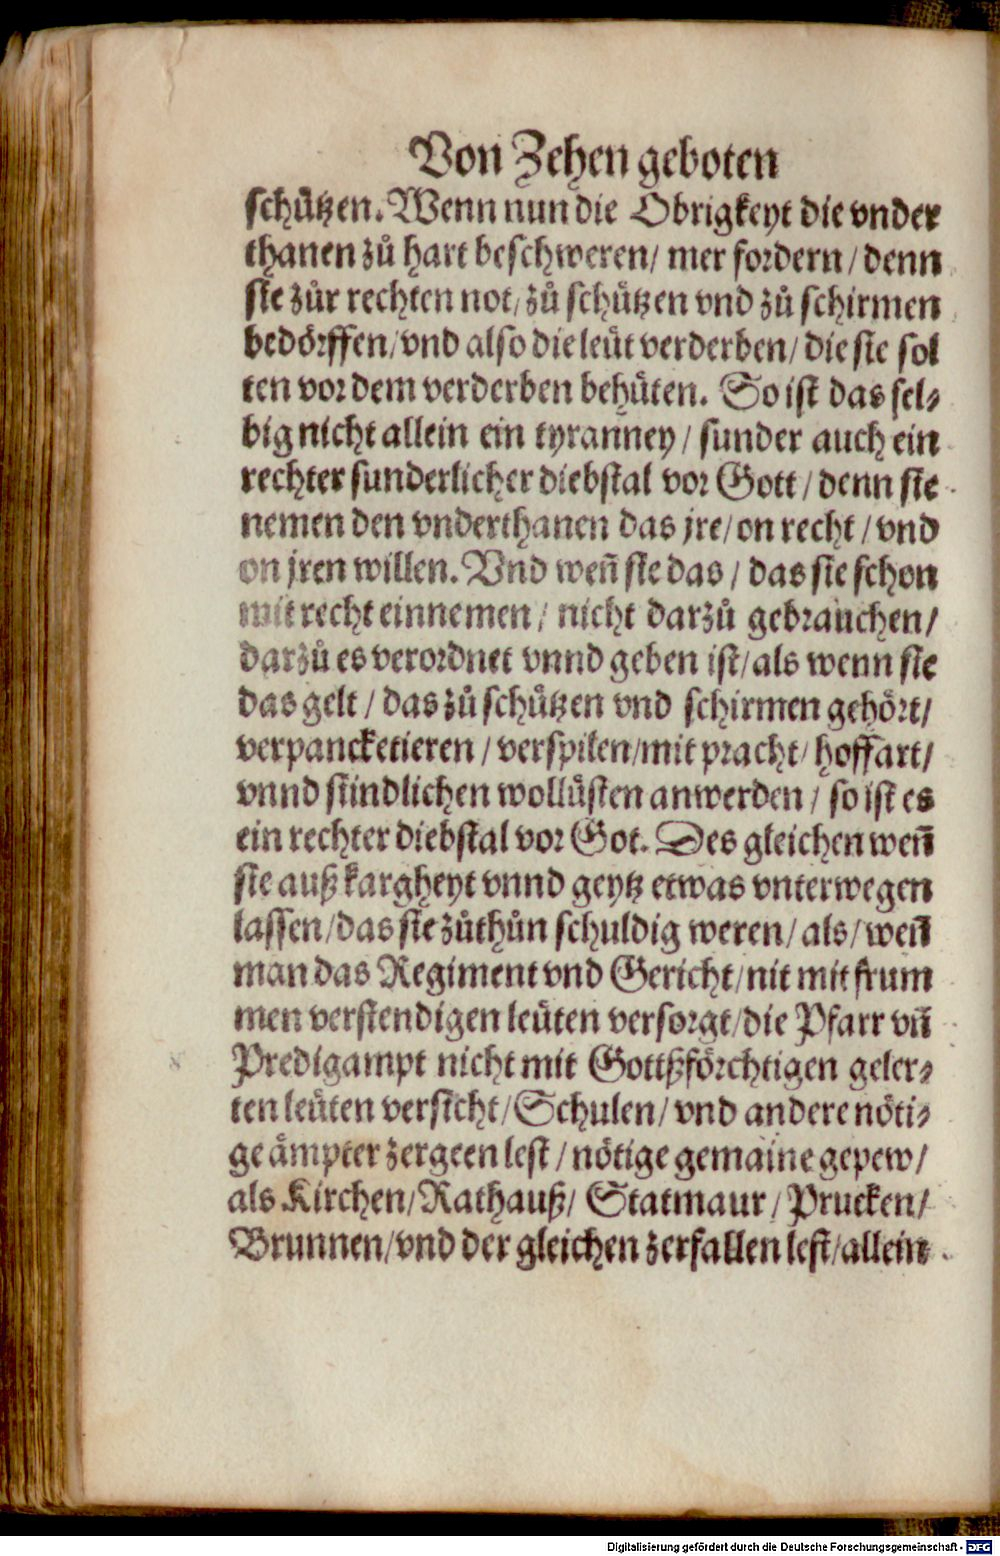 Von Zehen geboten
schützen. Wenn nun die Obrigkeyt die vnder
thanen zů hart beschweren/ mer fordern/ denn
sie zůr rechten not/ zů schützen vnd zů schirmen
bedörffen/ vnd also die leüt verderben/ die sie sol
ten vor dem verderben behüten. So ist das sel⸗
big nicht allein ein tyranney/ sunder auch ein
rechter sunderlicher diebstal vor Gott/ denn sie
nemen den vnderthanen das jre/ on recht/ vnd
on jren willen. Vnd weñ sie das/ das sie schon
mit recht einnemen/ nicht darzů gebrauchen/
darzů es verordnet vnnd geben ist/ als wenn sie
das gelt/ das zů schützen vnd schirmen gehört/
verpancketieren/ verspilen/ mit pracht/ hoffart/
vnnd sündlichen wollüsten anwerden/ so ist es
ein rechter diebstal vor Got. Des gleichen weñ
sie auß kargheyt vnnd geytz etwas vnterwegen
lassen/ das sie zůthůn schuldig weren/ als/ weñ
man das Regiment vnd Gericht/ nit mit frum
men verstendigen leüten versorgt/ die Pfarr vñ
Predigampt nicht mit Gottßförchtigen geler⸗
ten leüten versicht/ Schulen/ vnd andere nöti⸗
ge ämpter zergeen lest/ nötige gemaine gepew/
als Kirchen/ Rathauß/ Statmaur/ Prucken/
Brunnen/ vnd der gleichen zerfallen lest/ allein
Digitalisierung gefördert durch die Deutsche Forschungsgemeinschaft - DFG